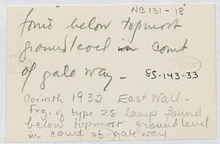 NB 131 - 18
found below topmost
ground level in court
of gate way -
85-143-33
Corinth 1932 East Wall -
Frg. of type 28 lamp found
below topmost ground level
in court of gate way